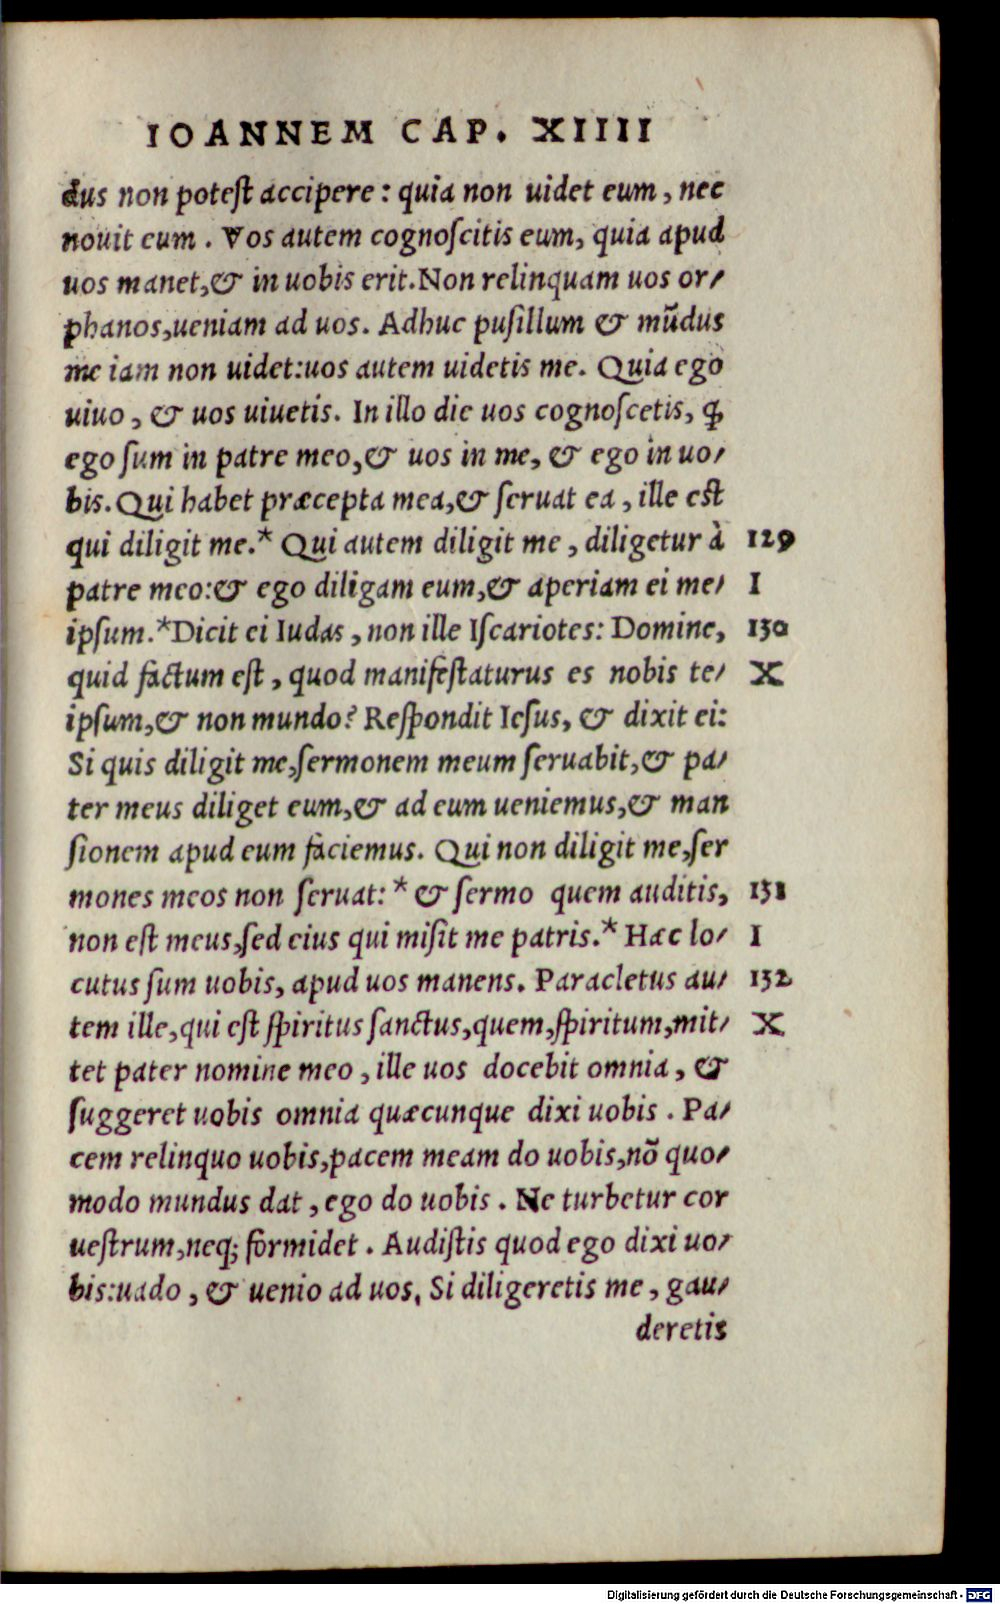 IOANNEM CAP. XIIII
dus non potest accipere: quia non uidet eum, nec
nouit eum. Vos autem cognoscitis eum, quia apud
uos manet,& in uobis erit. Non relinquam uos or/
phanos,ueniam ad uos. Adhuc pusillum & mũdus
me iam non uidet:uos autem uidetis me. Quia ego
uiuo, & uos uiuetis. In illo die uos cognoscetis, ꝙ
ego sum in patre meo,& uos in me, & ego in uo/
bis. Qui habet præcepta mea,& seruat ea, ille est
qui diligit me.* Qui autem diligit me, diligetur à 129
patre meo:& ego diligam eum,& aperiam ei me/ I
ipsum.*Dicit ei Iudas, non ille Iscariotes: Domine, 130
quid factum est, quod manifestaturus es nobis te/ X
ipsum,& non mundo? Respondit Iesus, & dixit ei:
Si quis diligit me,sermonem meum seruabit,& pa/
ter meus diliget eum,& ad eum ueniemus,& man
sionem apud eum faciemus. Qui non diligit me,ser
mones meos non seruat: * & sermo quem auditis, 131
non est meus,sed eius qui misit me patris.* Hæc lo/ I
cutus sum uobis, apud uos manens. Paracletus au/ 132
tem ille,qui est spiritus sanctus,quem,spiritum,mit/ X
tet pater nomine meo, ille uos docebit omnia, &
suggeret uobis omnia quæcunque dixi uobis. Pa/
cem relinquo uobis,pacem meam do uobis,nõ quo/
modo mundus dat, ego do uobis. Ne turbetur cor
uestrum,neq; formidet. Audistis quod ego dixi uo/
bis:uado, & uenio ad uos. Si diligeretis me, gau/
deretis
Digitalisierung gefördert durch die Deutsche Forschungsgemeinschaft - DFG